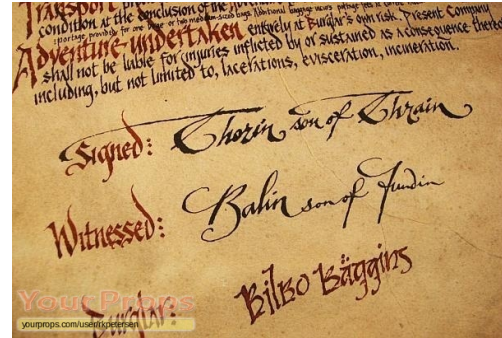 Transport
condition at the conclusion of the
Adventure undertaken entirely at Burglar's own risk. Present Company
shall not be liable for injuries inflicted by or sustained as a consequence thereo
including, but not limited to, lacerations, evisceration, incineration.
Signed: Thorin son of Thrain
Witnessed: Balin son of Fundin
Burglar: Bilbo Baggins
YourProps
yourprops.com/user/rkpetersen